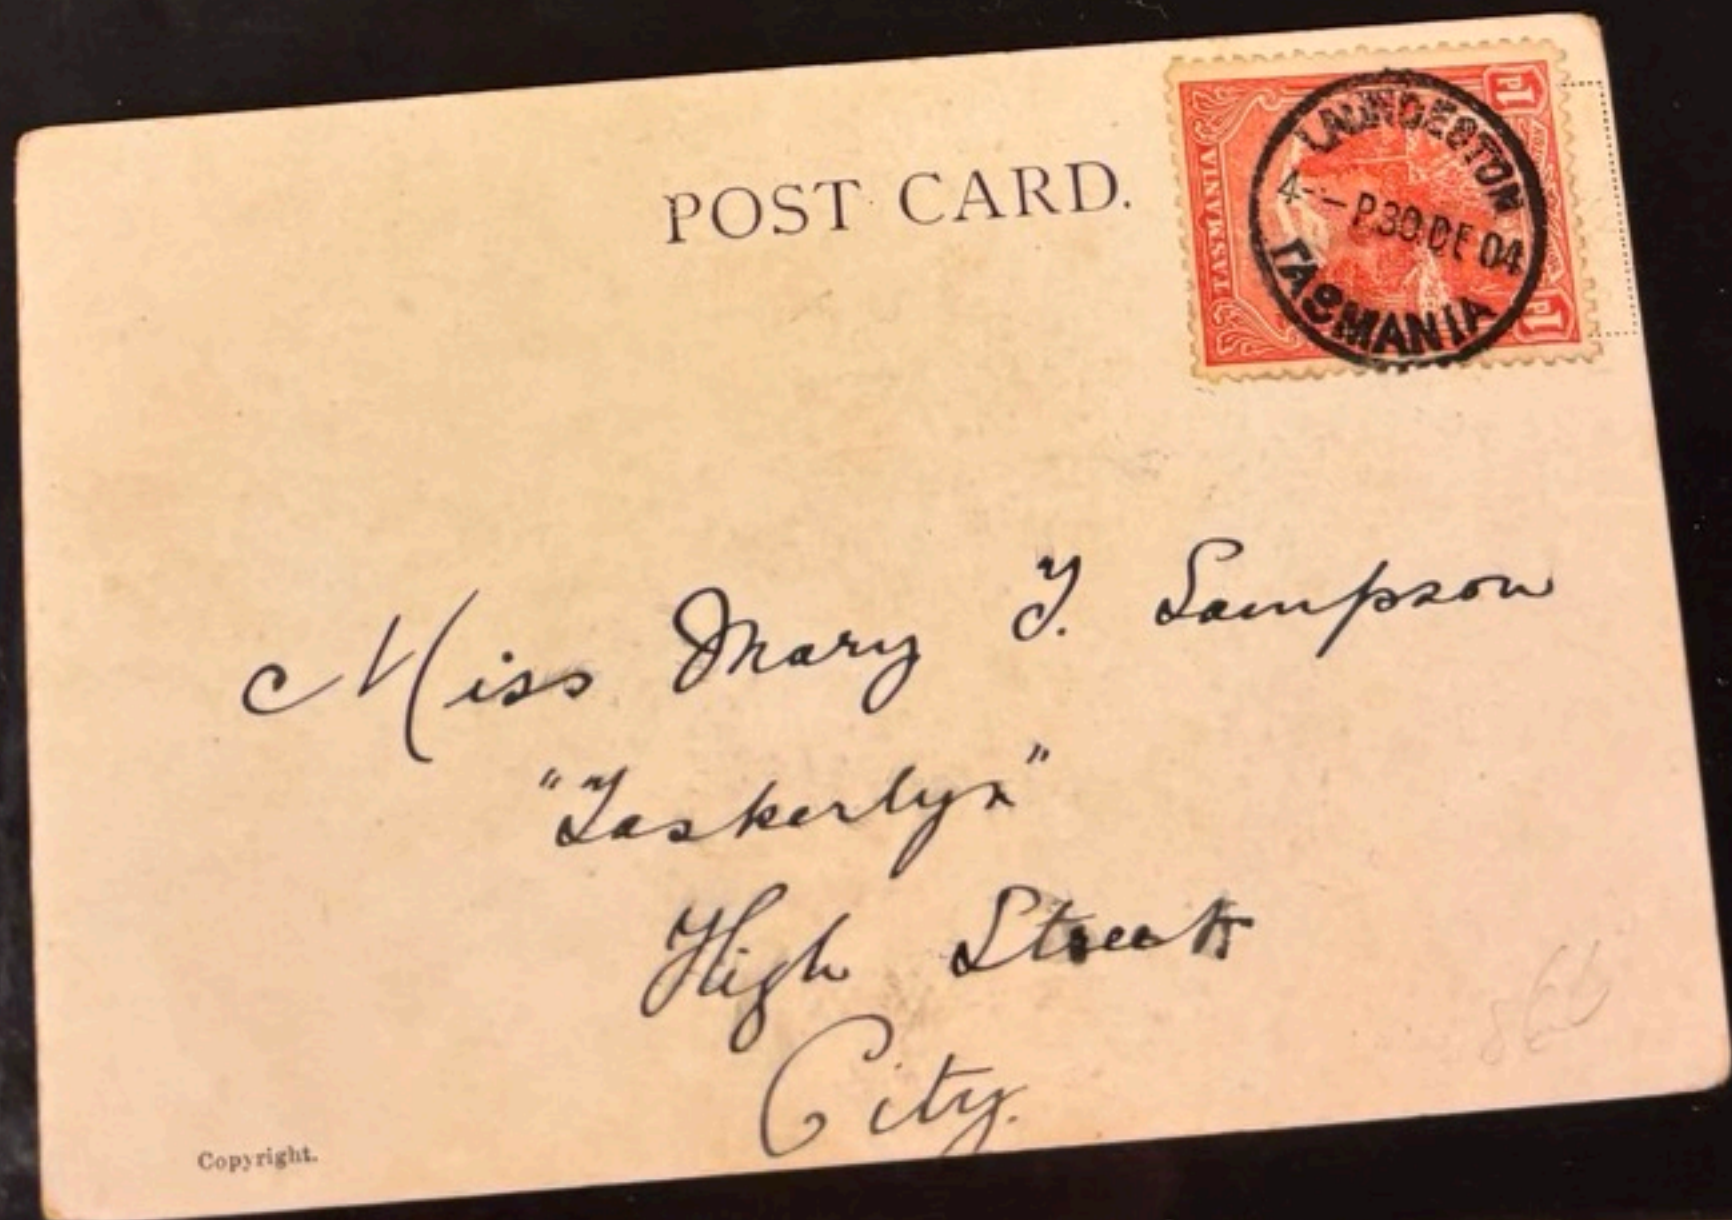 POST CARD.
TASMANIA
LAUNCESTON
4 - P.30.DE 04
TASMANIA
Miss Mary T. Sampson
"Taskerlyn"
High Street
City.
Copyright.